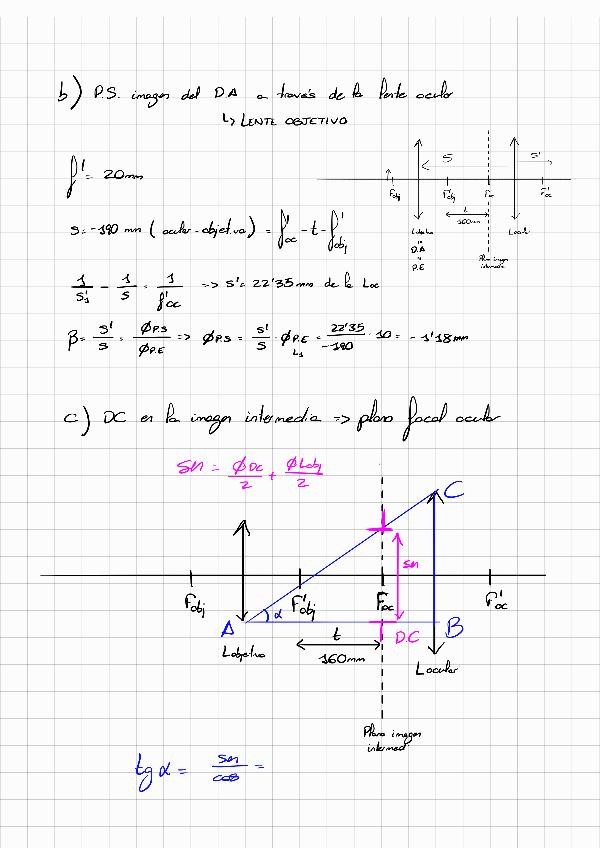 b) P.S. imagen del DA a través de la lente ocular
↳ LENTE OBJETIVO
f' = 20mm
S = -190 mm (ocular-objetivo) = f'oc - t - f'obj
1/S'1 - 1/S = 1/f'oc => S' = 22'35 mm de la Loc
β = S'/S = ØP.S/ØP.E => ØP.S = S'/S · ØP.E L1 = 22'35/-190 · 10 = -1'18mm
S S'
Fobj F'obj Foc F'oc
t
160mm
Lobjetivo Locul
D.A
"
P.E
Plano imagen
intermedia
c) DC en la imagen intermedia => plano focal ocular
Sn = ØDC/2 + ØLobj/2
C
sn
Fobj F'obj Foc F'oc
A α D.C B
t
160mm
Lobjetivo Locular
Plano imagen
intermed
tg α = sn/cos =